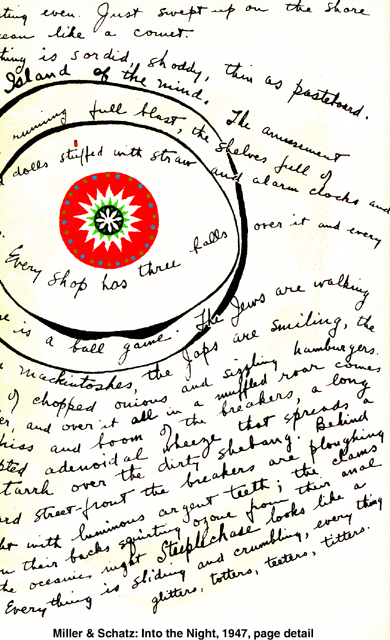 ting even. Just swept up on the shore
ean like a comet.
thing is sordid, shoddy, thin as pasteboard.
Island of the mind. The amusement
running full blast, the shelves full of
d dolls stuffed with straw and alarm clocks and
Every shop has three balls over it and every
e is a ball game. The Jews are walking
mackintoshes, the Japs are smiling, the
of chopped onions and sizzling hamburgers.
er, and over it all in a muffled roar comes
hiss and boom of the breakers, a long
pted adenoidal wheeze that spreads a
tarrh over the dirty shebang. Behind
ard street-front the breakers are ploughing
ht with luminous argent teeth; the clams
n their backs squirting ozone from their anal
the oceanic night Steeplechase looks like a
Everything is sliding and crumbling, every thing
glitters, totters, teeters, titters.
Miller & Schatz: Into the Night, 1947, page detail